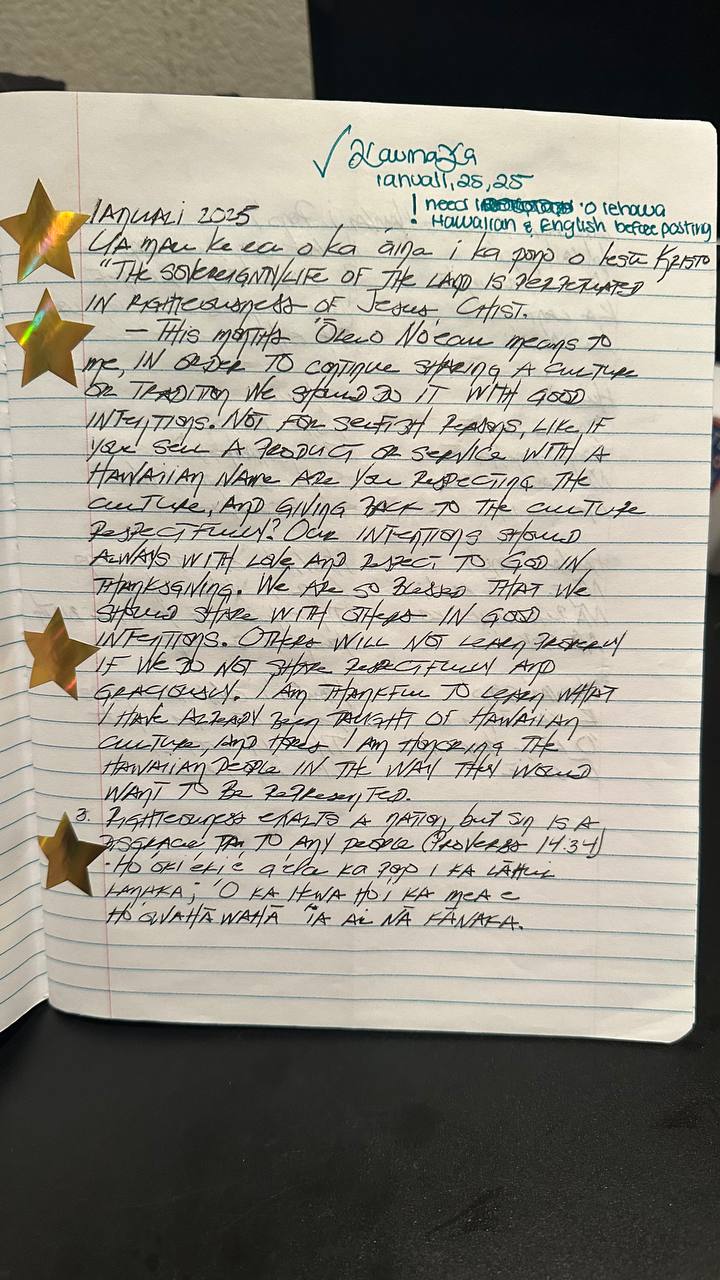 ✓ Kaumaka
ianuali, 25, 25
! need 'O Iehowa
Hawaiian & English before posting
IANUALI 2025
UA MAU ke ea o ka āina i ka pono o Iesu KRISTO
"THE SOVEREIGNTY/LIFE OF THE LAND IS PERPETUATED
IN RIGHTEOUSNESS OF JESUS, CHIST.
— THIS MONTHS 'ŌLELO NO'EAU MEANS TO
me, IN ORDER TO CONTINUE SHARING A CULTURE
OR TRADITON WE SHOULD DO IT WITH GOOD
INTENTIONS. NOT FOR SELFISH REASONS, LIKE IF
YOU SELL A PRODUCT OR SERVICE WITH A
HAWAIIAN NAME ARE YOU RESPECTING THE
CULTURE, AND GIVING BACK TO THE CULTURE
RESPECTFULLY? OUR INTENTIONS SHOULD
ALWAYS WITH LOVE AND RESPECT TO GOD IN
THANKSGIVING. WE ARE SO BLESSED THAT WE
SHOULD SHARE WITH OTHERS IN GOOD
INTENTIONS. OTHERS WILL NOT LEARN PROPERLY
IF WE DO NOT SHARE RESPECTFULLY AND
GRACIOUSLY. I AM THANKFUL TO LEARN WHAT
I HAVE ALREADY BEEN TAUGHT OF HAWAIIAN
CULTURE, AND HOPES I AM HONORING THE
HAWAIIAN PEOPLE IN THE WAY THEY WOULD
WANT TO BE REPRESENTED.
3. RIGHTEOUSNESS EXALTS A NATION, but SIN IS A
DISGRACE TO ANY PEOPLE (PROVERBS 14:34)
KA I KA LĀHUI
KANAKA; 'O KA HEWA HO'I KA MEA E
HO'OWAHĀWAHĀ 'IA AI NĀ KĀNAKA.